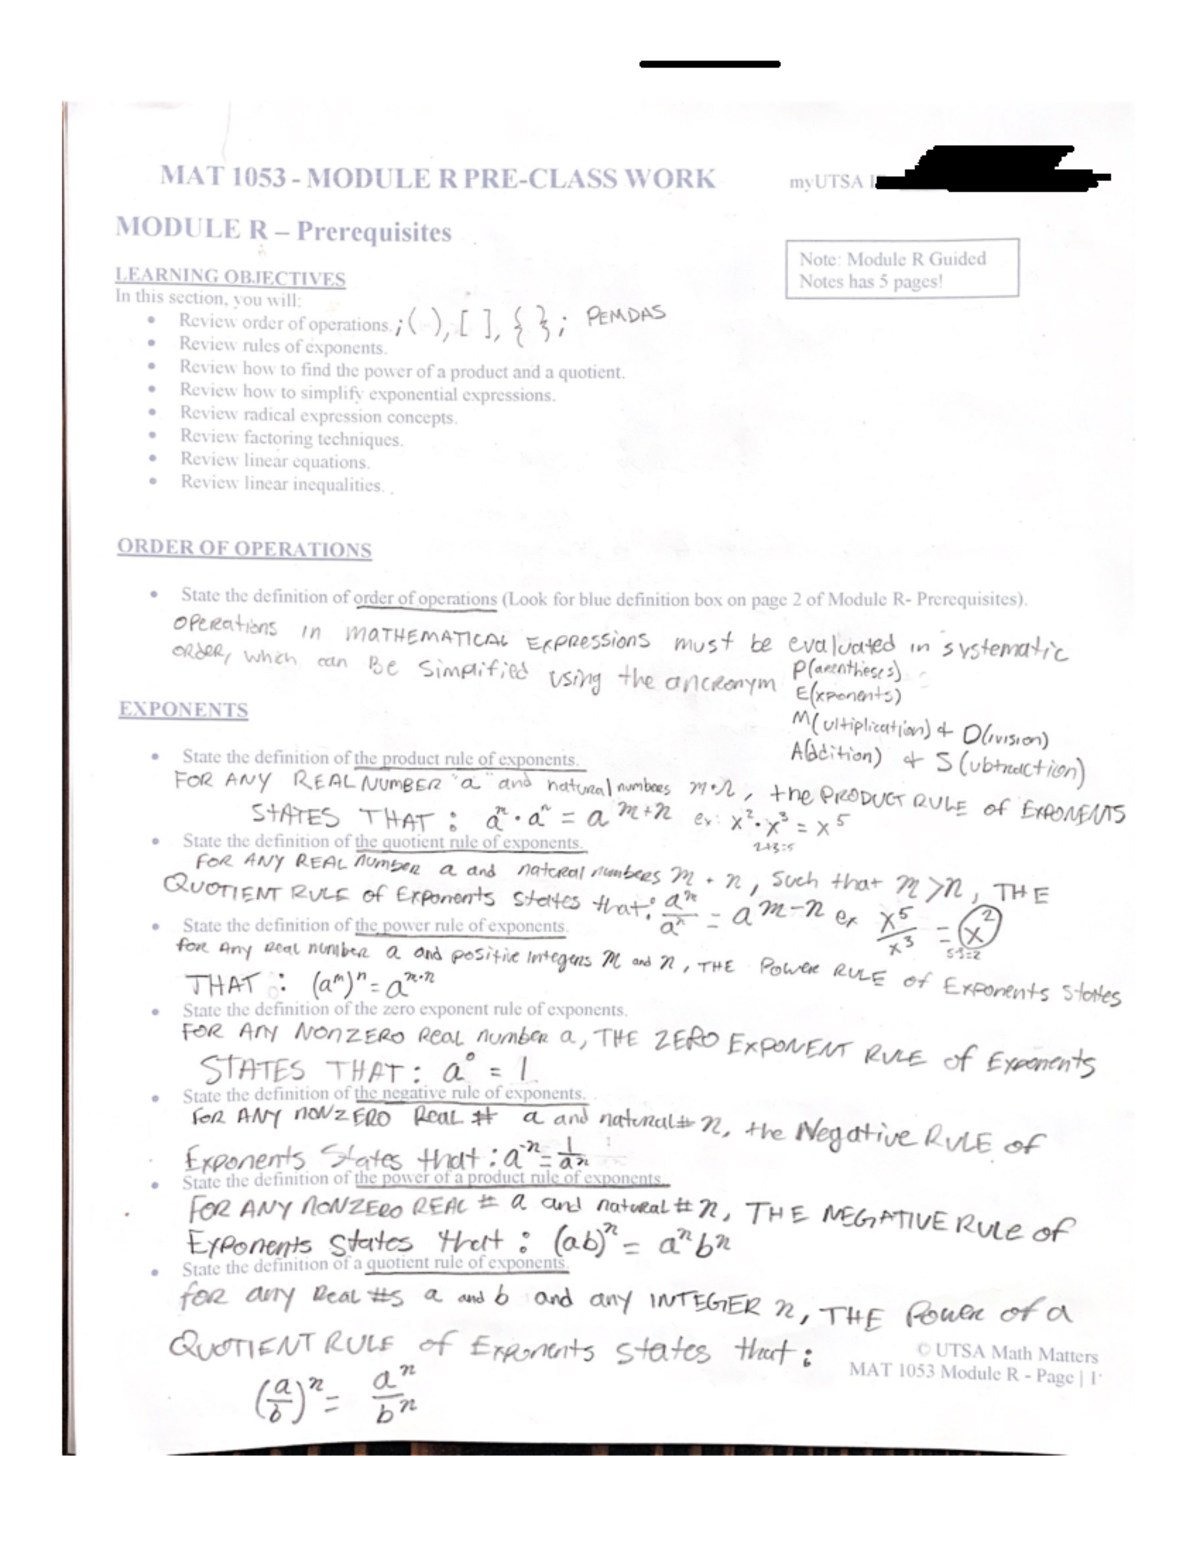 MAT 1053 - MODULE R PRE-CLASS WORK myUTSA
MODULE R – Prerequisites
Note: Module R Guided
Notes has 5 pages!
LEARNING OBJECTIVES
In this section, you will:
• Review order of operations. ; ( ), [ ], { } ; PEMDAS
• Review rules of exponents.
• Review how to find the power of a product and a quotient.
• Review how to simplify exponential expressions.
• Review radical expression concepts.
• Review factoring techniques.
• Review linear equations.
• Review linear inequalities. .
ORDER OF OPERATIONS
• State the definition of order of operations (Look for blue definition box on page 2 of Module R- Prerequisites).
OPerations in MATHEMATICAL EXPRESSIONS must be evaluated in systematic
ORDER, which can Be Simplified using the ancronym P(arentheses)
E(xponents)
M(ultiplication) + D(ivision)
A(ddition) + S(ubtraction)
EXPONENTS
• State the definition of the product rule of exponents.
FOR ANY REAL NUMBER "a" and natural numbers m+n, the PRODUCT RULE of EXPONENTS
STATES THAT : aᵐ · aⁿ = a^(m+n) ex: x² · x³ = x⁵
2+3=5
• State the definition of the quotient rule of exponents.
FOR ANY REAL Number a and natural numbers m + n, Such that m > n, THE
QUOTIENT RULE of Exponents States that: aᵐ/aⁿ = a^(m-n) ex x⁵/x³ = x²
5-3=2
• State the definition of the power rule of exponents.
for Any Real number a and positive Integers m and n, THE POWER RULE of Exponents States
THAT : (aᵐ)ⁿ = a^(m·n)
• State the definition of the zero exponent rule of exponents.
FOR ANY NONZERO Real number a, THE ZERO EXPONENT RULE of Exponents
STATES THAT : a⁰ = 1
• State the definition of the negative rule of exponents.
FOR ANY NONZERO Real # a and natural # n, the Negative RULE of
Exponents States that : a⁻ⁿ = 1/aⁿ
• State the definition of the power of a product rule of exponents.
FOR ANY NONZERO REAL # a and natural # n, THE NEGATIVE RULE of
Exponents States that : (ab)ⁿ = aⁿbⁿ
• State the definition of a quotient rule of exponents.
for any Real #s a and b and any INTEGER n, THE Power of a
QUOTIENT RULE of Exponents states that :
(a/b)ⁿ = aⁿ/bⁿ
© UTSA Math Matters
MAT 1053 Module R - Page | 1